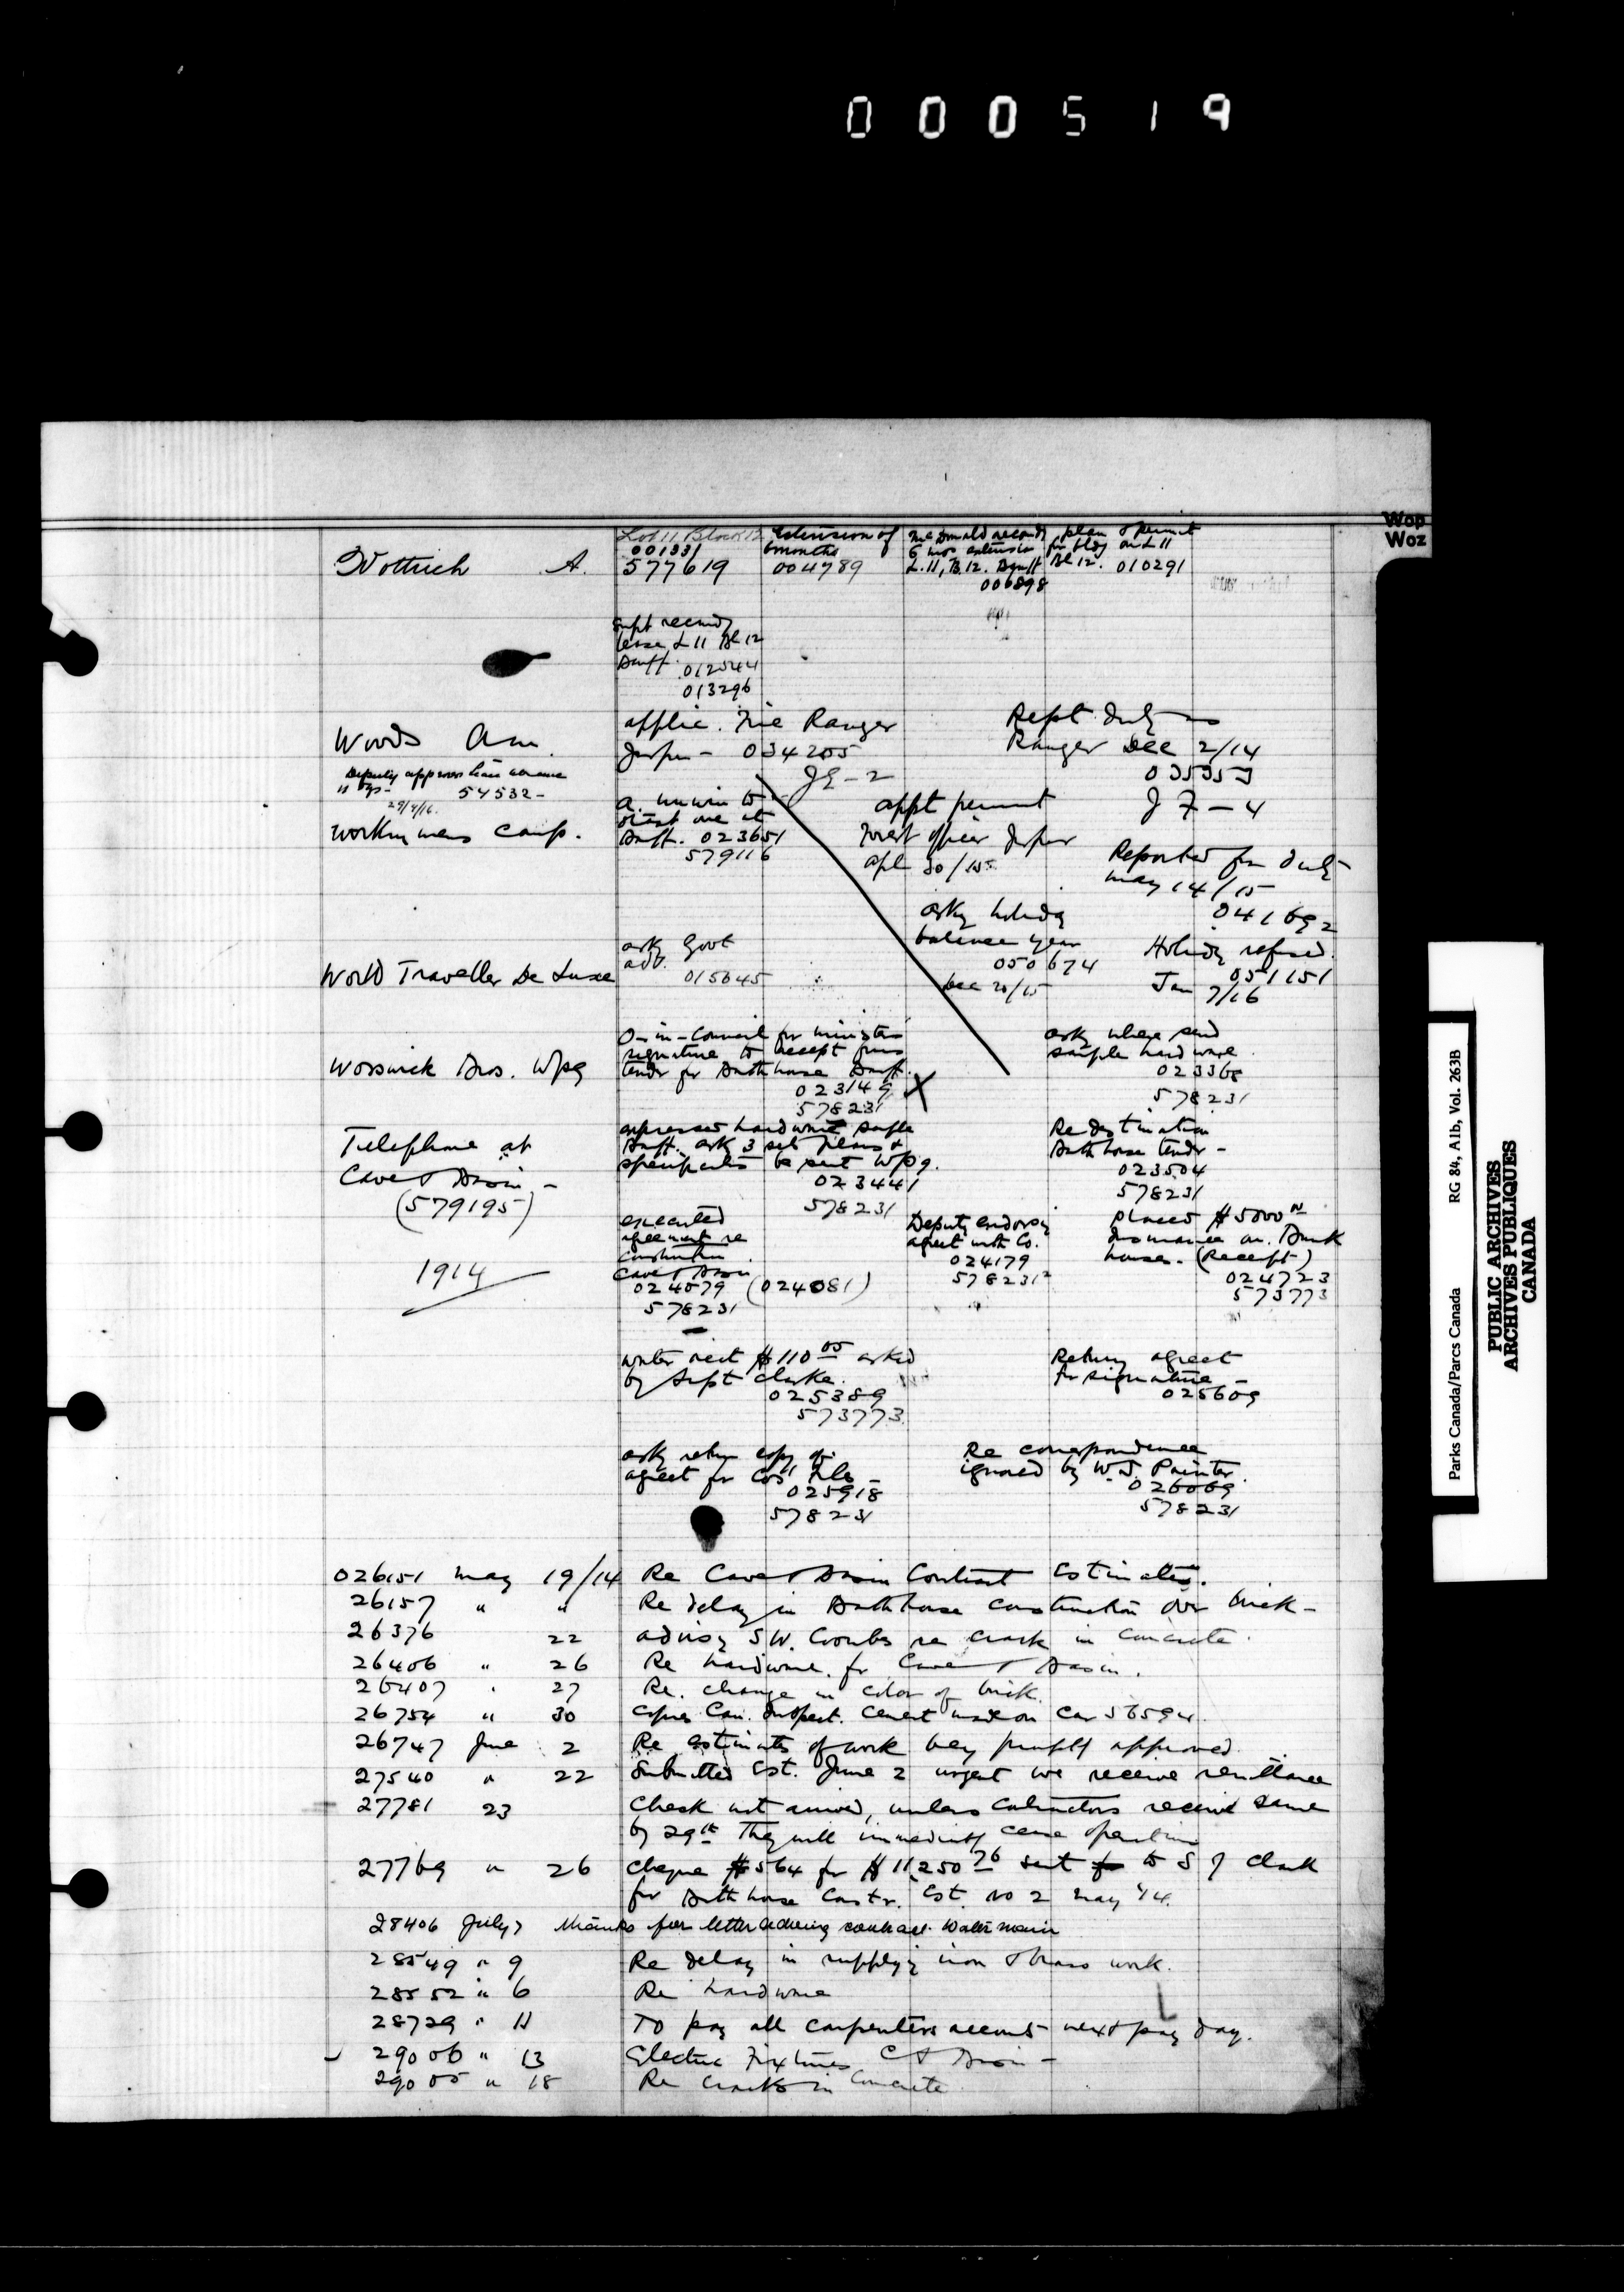 000519
Wop
Woz
Wottrich A.
Lot 11 Block 12
001331
577619
extension of
6 months
004789
McDonald
6 mos extension
L. 11, B. 12. Banff
006898
plan & permit
for bldg on L 11
Bl 12. 010291
Supt
lease L 11 Bl 12
Banff. 012544
013296
Woods
Deputy approves
54532-
29/4/16.
applic. Fire Ranger
Jasper - 034205
J9-2
Rept duty as
Ranger Dec 2/14
035353
J 7-4
appt permanent
Forest officer Jasper
apl 30/15
Reported for duty
May 14/15
041692
asks holiday
balance year
050674
Dec 20/15
Holiday refused.
051151
Jan 7/16
Workmens Camp.
a. Unwin to
start one at
Banff. 023651
579116
World Traveller De Luxe
asks Govt
adv.
015645
Worswick Bros. Wpg
O-in-Council for ministers
signature to accept firms
tender for Bathhouse Banff.
023149
578231
X
asks where send
sample hardware.
023368
578231
Telephone at
Cave & Basin -
(579195)
1914
expresses hardware sample
Banff. asks 3 sets plans &
specifications be sent Wpg.
023441
578231
Re destination
Bathhouse tender -
023504
578231
executed
agreement re
construction
Cave & Basin
024079 (024081)
578231
Deputy endorsing
agreet with Co.
024179
578231
placed $5000
Insurance on Bunk
house. (Receipt)
024723
573773
water rent $110.00 asked
by Supt Clarke.
025389
573773
Returning agreet
for signature -
025609
asks return copy of
agreet for Cos' file -
025918
578231
Re correspondence
ignored by W. S. Painter.
026069
578231
026151 May 19/14 Re Cave & Basin Contract Estimates.
26157 " " Re delay in Bathhouse construction over brick -
26376 22 advising S W. Coombs re crack in concrete.
26406 " 26 Re hardware for Cave & Basin.
26407 " 27 Re. change in color of brick.
26754 " 30 Copies Can. Inspect. Cement made on Car 56594.
26747 June 2 Re estimates of work being promptly approved.
27540 " 22 Submitted Est. June 2 urgent we receive remittance
27781 23 Check not arrived, unless contractors receive same
by 29th They will immediately cease operations
27769 " 26 Cheque #564 for $11,250.76 sent to S J Clark
for Bathhouse Constr. Est. No 2 May '14.
28406 July 7 thanks for letter contract. Water main
28549 " 9 Re delay in supplying iron & brass work.
28552 " 6 Re hardware
28729 " 11 To pay all carpenters accounts next pay day.
29006 " 13 Electric Fixtures C & Basin -
29005 " 18 Re Cracks in Concrete
Parks Canada/Parcs Canada RG 84, A1b, Vol. 263B
PUBLIC ARCHIVES
ARCHIVES PUBLIQUES
CANADA